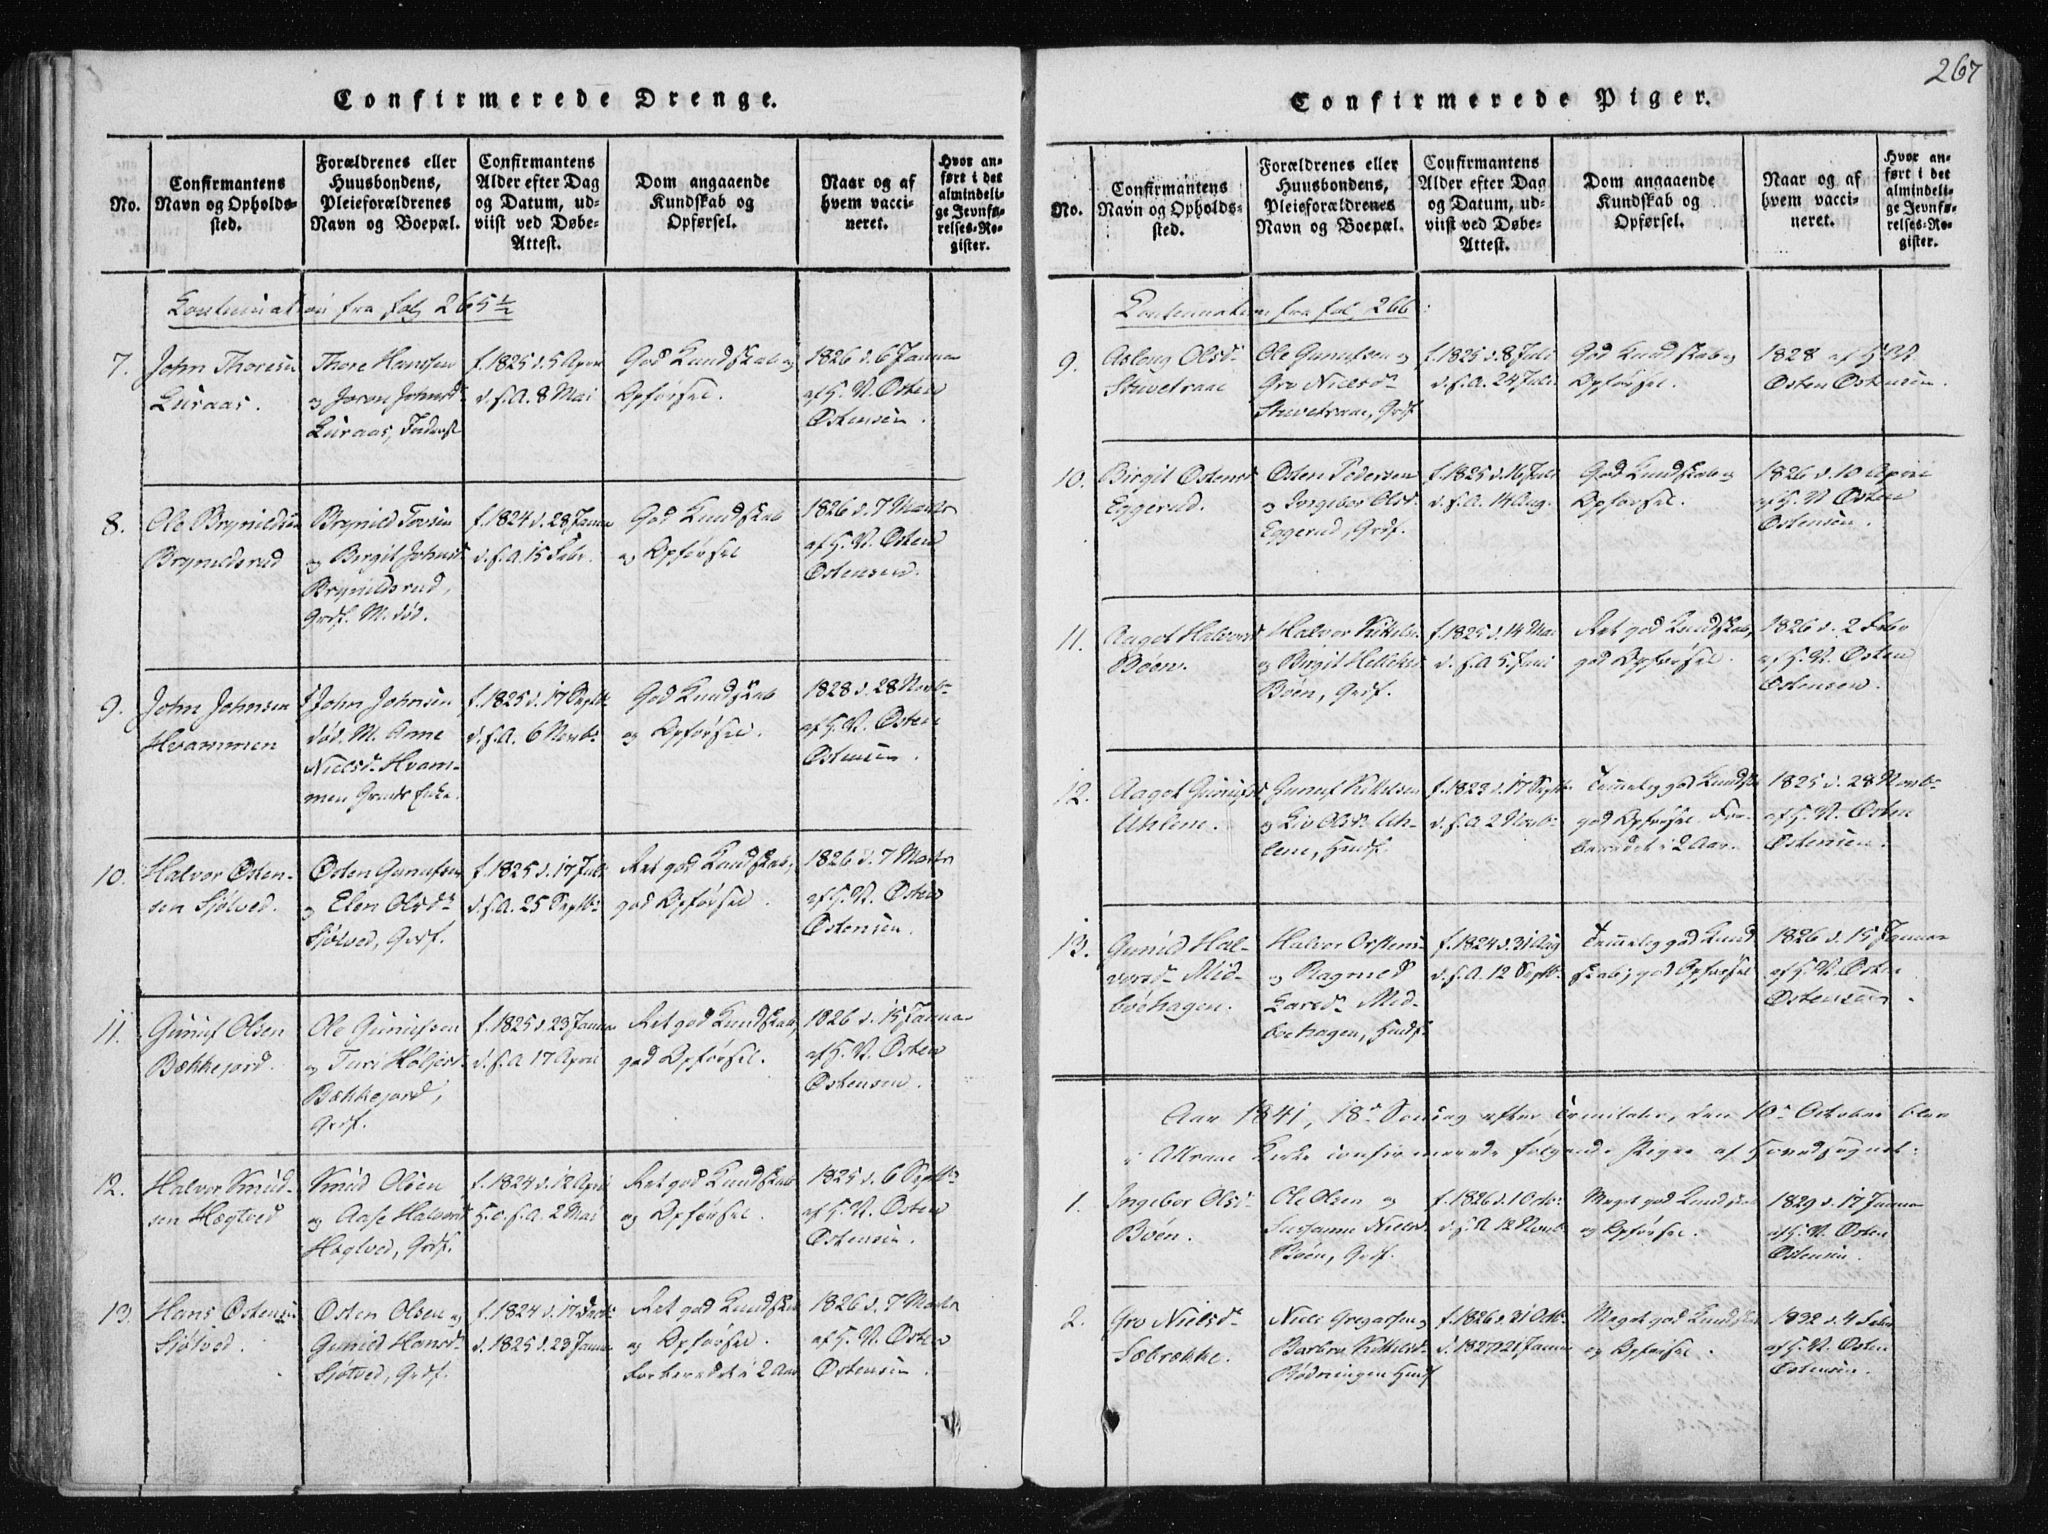 267
Confirmerede Drenge.
No.
Confirmantens
Navn og Opholds-
sted.
Forældrenes eller
Huusbondens,
Pleieforældrenes
Navn og Boepæl.
Confirmantens
Alder efter Dag
og Datum, ud-
viist ved Døbe-
Attest.
Dom angaaende
Kundskab og
Opførsel.
Naar og af
hvem vacci-
neret.
Hvor an-
ført i det
almindeli-
ge Jevnfø-
relses-Re-
gister.
Continuation fra fol 265½
7.
John Thoresen
Luraas.
Thore Hansen
og Joron Johnsd
Luraas,
f. 1825 d. 5 April
d. s. A. 8 Mai
God Kundskab og
Opførsel.
1826 d. 6 Januar
af H. N. Østen
Østensen.
8.
Ole Brynildsen
Brynildsrud
Brynild Tovsen
og Birgit Johnsd
Brynildsrud,
Grdf. M. død.
f. 1824 d. 28 Januar
d. s. A. 15 Febr.
God Kundskab
og Opførsel
1826 d. 7 Marts
af H. N. Østen
Østensen.
9.
John Johnsen
Hvammen
John Johnsen
død. M. Anne
Nielsd. Hvam-
men Grmds Enke.
f. 1825 d. 17 Septb.
d. s. A. 6 Novbr
God Kundskab
og Opførsel.
1828 d. 28 Novbr
af H. N. Østen
Østensen.
10.
Halvor Østen-
sen Sjøtved.
Østen Gunufsen
og Elen Olsdr
Sjøtved, Grdf.
f. 1825 d. 17 Juli
d. s. A. 25 Septbr
Ret god Kundskab,
god Opførsel.
1826 d. 7 Marts
af H. N. Østen
Østensen.
11.
Gunuf Olsen
Bækkejord.
Ole Gunufsen
og Turi Høljesd
Bækkejord,
Grdf.
f. 1825 d. 23 Januar
d. s. A 17 April
Ret god Kundskab,
god Opførsel.
1826 d. 15 Januar
af H. N. Østen
Østensen.
12.
Halvor Knud-
sen Hægtved
Knud Olsen
og Aase Halvorsd
Hægtved, Grdf.
f. 1824 d. 12 April
H. d. s. A. 2 Mai
Ret god Kundskab
og Opførsel.
1825 d. 6 Septbr
af H. N. Østen
Østensen.
13.
Hans Østensen
Sjøtved.
Østen Olsen og
Gunild Hansd
Sjøtved, Grdf.
f. 1824 d. 17 Decbr
d. 1825 d. 23 Januar
Ret god Kundskab
og Opførsel.
Forberedet i 2 Aar
1826 d. 7 Marts
af H. N. Østen
Østensen.
Confirmerede Piger.
No.
Confirmantens
Navn og Opholds-
sted.
Forældrenes eller
Huusbondens,
Pleieforældrenes
Navn og Boepæl.
Confirmantens
Alder efter Dag
og Datum, ud-
viist ved Døbe-
Attest.
Dom angaaende
Kundskab og
Opførsel.
Naar og af
hvem vacci-
neret.
Hvor an-
ført i det
almindeli-
ge Jevnfø-
relses-Re-
gister.
Continuation fra fol 266.
9.
Aslaug Olsdr
Stuvetraae
Ole Gunufsen og
Gro Nielsdr
Stuvetraae, Grdf.
f. 1825 d. 8 Juli
d. s. A. 24 Juli
God Kundskab og
Opførsel.
1828 af H. N.
Østen Østensen.
10.
Birgit Østensd
Eggerud.
Østen Pedersen
og Ingebor Olsd.
Eggerud, Grdf.
f. 1825 d. 16 Juli
d. s. A. 14 Aug.
God Kundskab og
Opførsel.
1826 d. 10 April
af H. N. Østen
Østensen.
11.
Aaget Halvorsd
Bøen.
Halvor Kittelsen
og Birgit Helliksd
Bøen, Grdf.
f. 1825 d. 14 Mai
d. s. A 5 Juni
Ret god Kundskab,
god Opførsel.
1826 d. 2 Febr
af H. N. Østen
Østensen.
12.
Aaget Gunufsd
Uhlene.
Gunuf Kittelsen
og Liv Olsd. Uh-
lene, Huusf.
f. 1823 d. 17 Septbr
d. s. A 2 Novbr
Temmelig god Kundsk.
god Opførsel. For-
beredet i 2 Aar.
1825 d. 28 Novbr
af H. N. Østen
Østensen.
13.
Gunild Hal-
vorsdr Mid-
bøehagen.
Halvor Østens.
og Ragnild
Larsdr Mid-
bøehagen, Huusf.
f. 1824 d. 31 Aug
d. s. A. 12 Septbr.
Temmelig god Kund-
skab, god Opførsel
1826 d. 15 Januar
af H. N. Østen
Østensen.
Aar 1841, 18de Søndag efter Trinitatis, den 10de October blev
i Attraae Kirke confirmerede følgende Piger af Hovedsognet.
1.
Ingebor Olsd.
Bøen.
Ole Olsen og
Susanne Nielsd
Bøen, Grdf.
f. 1826 d. 1 Octbr
d. s. A 12 Novbr
Meget god Kundskab
og Opførsel.
1829 d. 17 Januar
af H. N. Østen
Østensen.
2.
Gro Nielsdr
Sæbrække.
Niels Gregarsen og
Barbro Kittelsd.
Rødningen Huusf
f. 1826 d. 31 Octbr
d. 1827 d. 21 Januar
Meget god Kundskab
og Opførsel.
1832 d. 4 Febr
af H. N. Østen
Østensen.